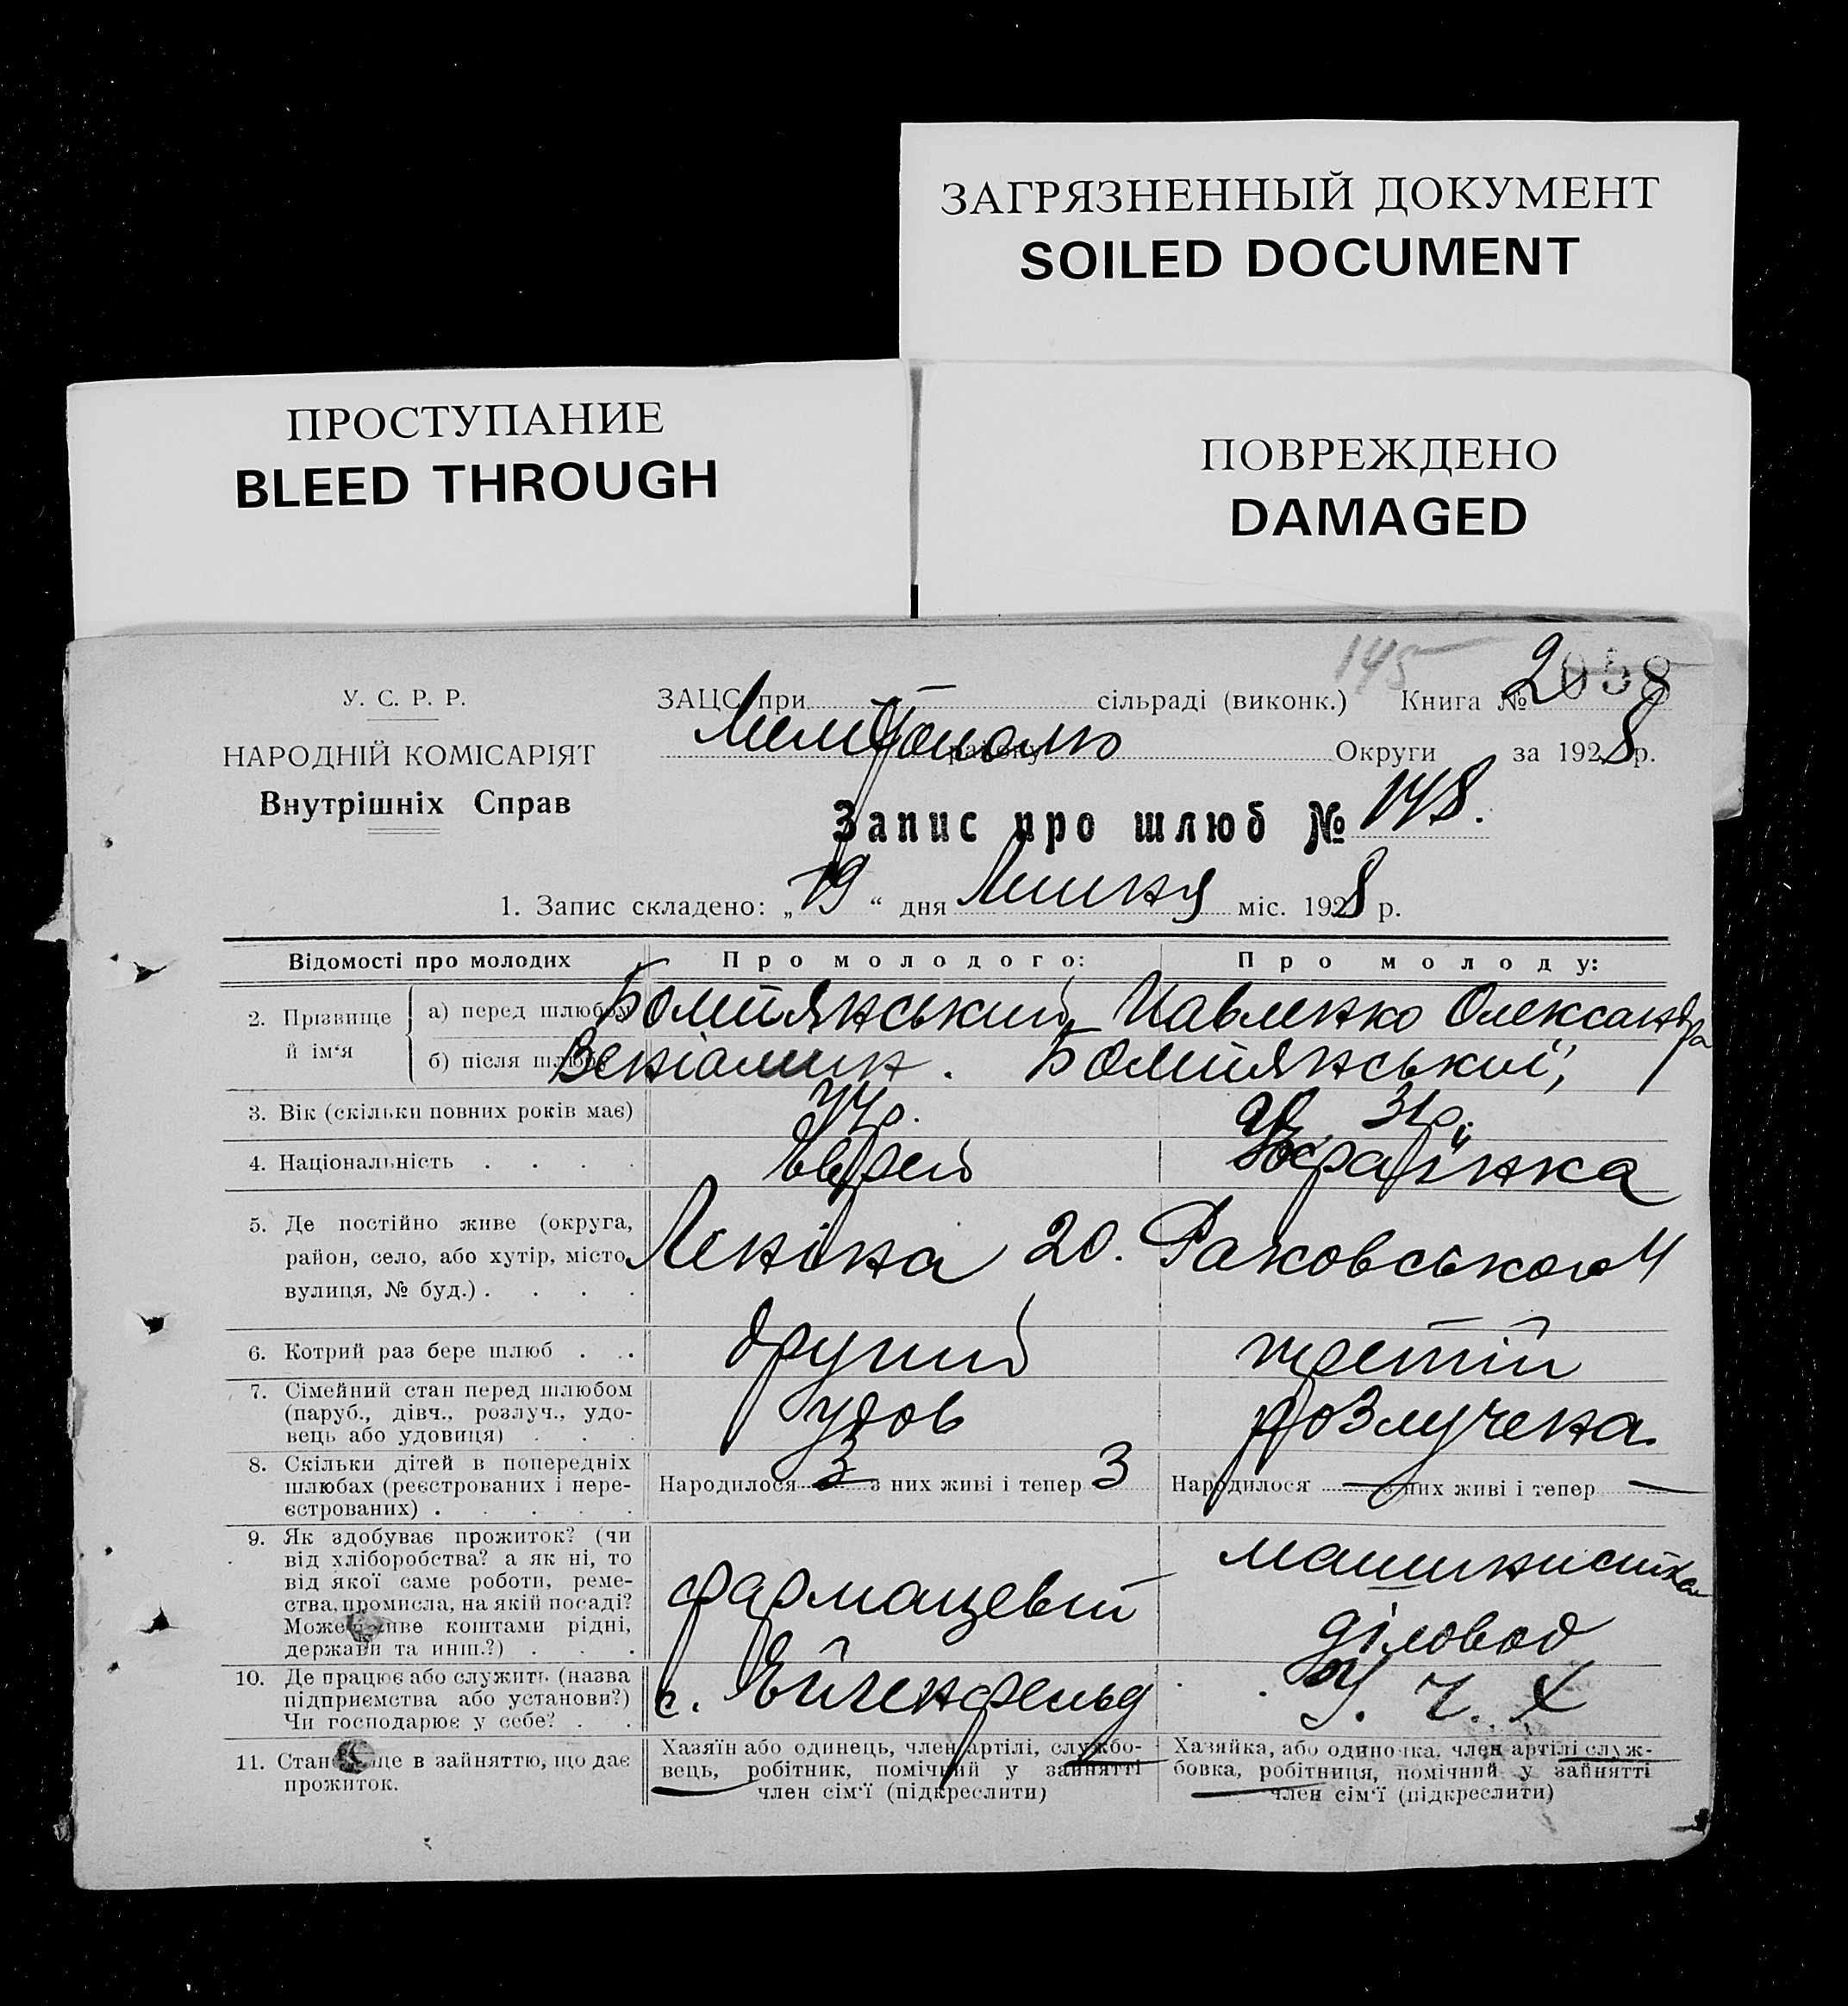 ЗАГРЯЗНЕННЫЙ ДОКУМЕНТ
SOILED DOCUMENT
ПРОСТУПАНИЕ
BLEED THROUGH
ПОВРЕЖДЕНО
DAMAGED
145
У. С. Р. Р.
НАРОДНІЙ КОМІСАРІЯТ
Внутрішніх Справ
ЗАЦС при — сільраді (виконк.) Книга № 2058
району Округи за 1928 р.
Запис про шлюб № 148.
1. Запис складено: „19“ дня Липня міс. 1928 р.
Відомості про молодих Про молодого: Про молоду:
2. Прізвище й ім‘я
а) перед шлюбом Болтянський Павленко Олександра
б) після шлюбу Веніамин. Болтянський
3. Вік (скільки повних років має) 44р. 31р.
4. Національність Єврей Українка
5. Де постійно живе (округа, район, село, або хутір, місто, вулиця, № буд.) Леніна 20. Раковського 4
6. Котрий раз бере шлюб другий третій
7. Сімейний стан перед шлюбом (паруб., дівч., розлуч., удовець або удовиця) удов розлучена.
8. Скільки дітей в попередніх шлюбах (реєстрованих і нереєстрованих) Народилося 3 з них живі і тепер 3 Народилося — з них живі і тепер —
9. Як здобуває прожиток? (чи від хліборобства? а як ні, то від якої саме роботи, ремества, промисла, на якій посаді? Може живе коштами рідні, держави та инш.?) фармацевт машинистка діловод
10. Де працює або служить (назва підприємства або установи?) Чи господарює у себе? с. Ейгенфельд У. Ч. Х
11. Становище в зайняттю, що дає прожиток.
Хазяїн або одинець, член артілі, службовець, робітник, помічний у зайнятті член сім‘ї (підкреслити)
Хазяйка, або одиночка, член артілі службовка, робітниця, помічний у зайнятті член сім‘ї (підкреслити)